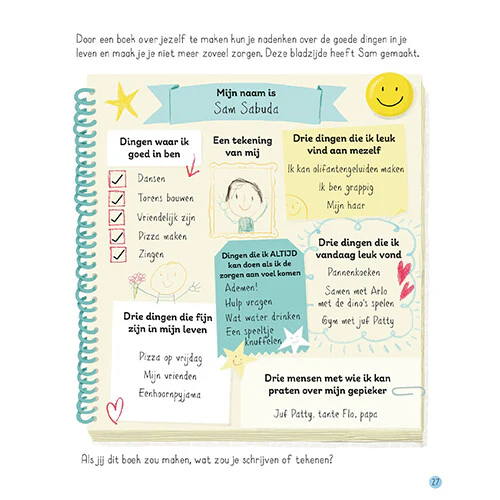 Door een boek over jezelf te maken kun je nadenken over de goede dingen in je
leven en maak je je niet meer zoveel zorgen. Deze bladzijde heeft Sam gemaakt.
Mijn naam is
Sam Sabuda
Dingen waar ik
goed in ben
Dansen
Torens bouwen
Vriendelijk zijn
Pizza maken
Zingen
Een tekening
van mij
Drie dingen die ik leuk
vind aan mezelf
Ik kan olifantengeluiden maken
Ik ben grappig
Mijn haar
Dingen die ik ALTIJD
kan doen als ik de
zorgen aan voel komen
Ademen!
Hulp vragen
Wat water drinken
Een speeltje
knuffelen
Drie dingen die ik
vandaag leuk vond
Pannenkoeken
Samen met Arlo
met de dino's spelen
Gym met juf Patty
Drie dingen die fijn
zijn in mijn leven
Pizza op vrijdag
Mijn vrienden
Eenhoornpyjama
Drie mensen met wie ik kan
praten over mijn gepieker
Juf Patty, tante Flo, papa
Als jij dit boek zou maken, wat zou je schrijven of tekenen?
27